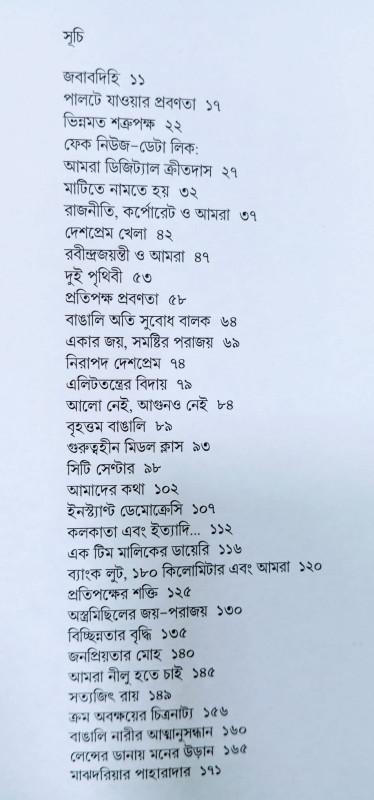 সূচি
জবাবদিহি ১১
পালটে যাওয়ার প্রবণতা ১৭
ভিন্নমত শত্রুপক্ষ ২২
ফেক নিউজ-ডেটা লিক:
আমরা ডিজিট্যাল ক্রীতদাস ২৭
মাটিতে নামতে হয় ৩২
রাজনীতি, কর্পোরেট ও আমরা ৩৭
দেশপ্রেম খেলা ৪২
রবীন্দ্রজয়ন্তী ও আমরা ৪৭
দুই পৃথিবী ৫৩
প্রতিপক্ষ প্রবণতা ৫৮
বাঙালি অতি সুবোধ বালক ৬৪
একার জয়, সমষ্টির পরাজয় ৬৯
নিরাপদ দেশপ্রেম ৭৪
এলিটতন্ত্রের বিদায় ৭৯
আলো নেই, আগুনও নেই ৮৪
বৃহত্তম বাঙালি ৮৯
গুরুত্বহীন মিডল ক্লাস ৯৩
সিটি সেণ্টার ৯৮
আমাদের কথা ১০২
ইনস্ট্যাণ্ট ডেমোক্রেসি ১০৭
কলকাতা এবং ইত্যাদি... ১১২
এক টিম মালিকের ডায়েরি ১১৬
ব্যাংক লুট, ১৮০ কিলোমিটার এবং আমরা ১২০
প্রতিপক্ষের শক্তি ১২৫
অস্ত্রমিছিলের জয়-পরাজয় ১৩০
বিচ্ছিন্নতার বৃদ্ধি ১৩৫
জনপ্রিয়তার মোহ ১৪০
আমরা নীলু হতে চাই ১৪৫
সত্যজিৎ রায় ১৪৯
ক্রম অবক্ষয়ের চিত্রনাট্য ১৫৬
বাঙালি নারীর আত্মানুসন্ধান ১৬০
লেন্সের ডানায় মনের উড়ান ১৬৫
মাঝদরিয়ার পাহারাদার ১৭১